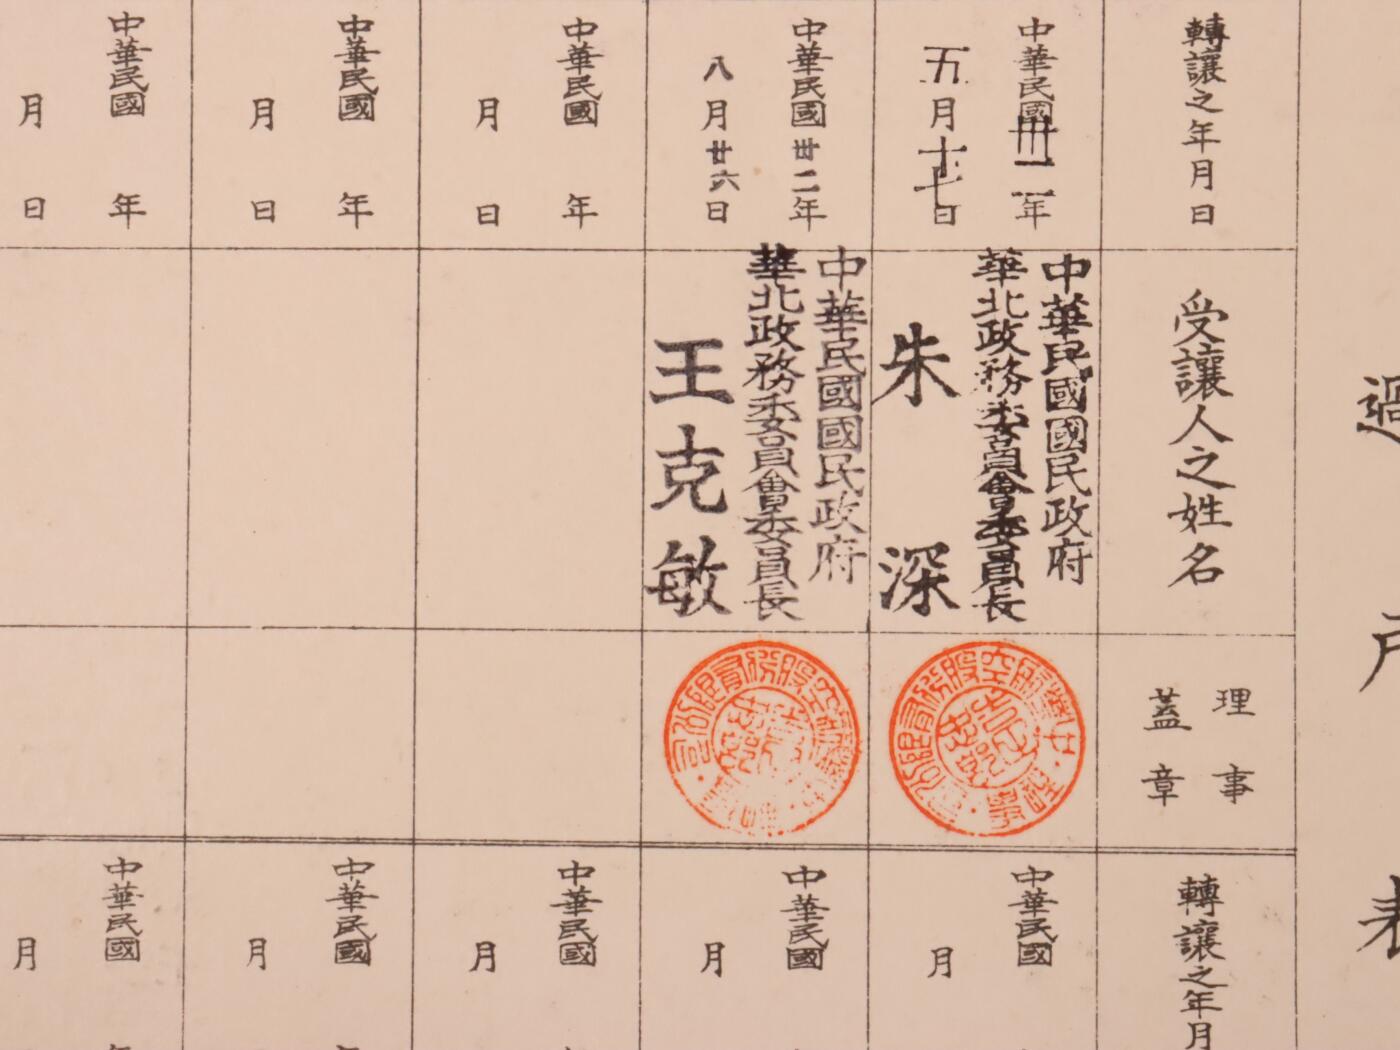 過戶表
轉讓之年月日
受讓人之姓名
理事
蓋章
中華民國卅二年
五月十七日
中華民國國民政府
華北政務委員會委員長
朱深
中華民國卅二年
八月廿六日
中華民國國民政府
華北政務委員會委員長
王克敏
中華民國 年
月 日
中華民國 年
月 日
中華民國 年
月 日
轉讓之年月
中華民國
月
中華民國
月
中華民國
月
中華民國
月
中華民國
月